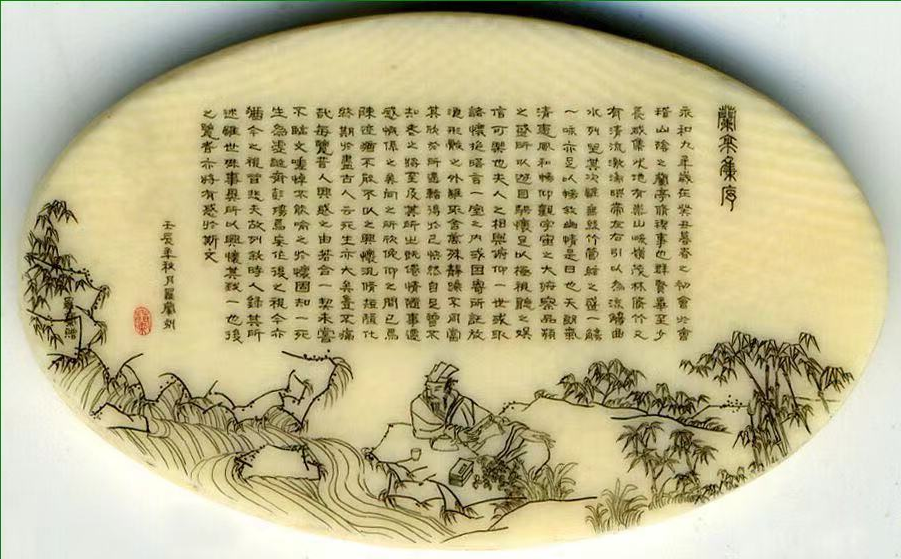 蘭亭集序
永和九年歲在癸丑暮春之初會於會
稽山陰之蘭亭脩稧事也群賢畢至少
長咸集此地有崇山峻嶺茂林修竹又
有清流激湍暎帶左右引以為流觴曲
水列坐其次雖無絲竹管絃之盛一觴
一咏亦足以暢敘幽情是日也天朗氣
清惠風和暢仰觀宇宙之大俯察品類
之盛所以遊目騁懷足以極視聽之娛
信可樂也夫人之相與俯仰一世或取
諸懷抱晤言一室之內或因寄所託放
浪形骸之外雖取舍萬殊靜躁不同當
其欣於所遇輒得於己怏然自足曾不
知老之將至及其所之既倦情隨事遷
感慨係之矣向之所欣俛仰之間已為
陳迹猶不能不以之興懷況脩短隨化
終期於盡古人云死生亦大矣豈不痛
哉每覽昔人興感之由若合一契未嘗
不臨文嗟悼不能喻之於懷固知一死
生為虛誕齊彭殤為妄作後之視今亦
猶今之視昔悲夫故列敘時人錄其所
述雖世殊事異所以興懷其致一也後
之覽者亦將有感於斯文
壬辰年秋月刻